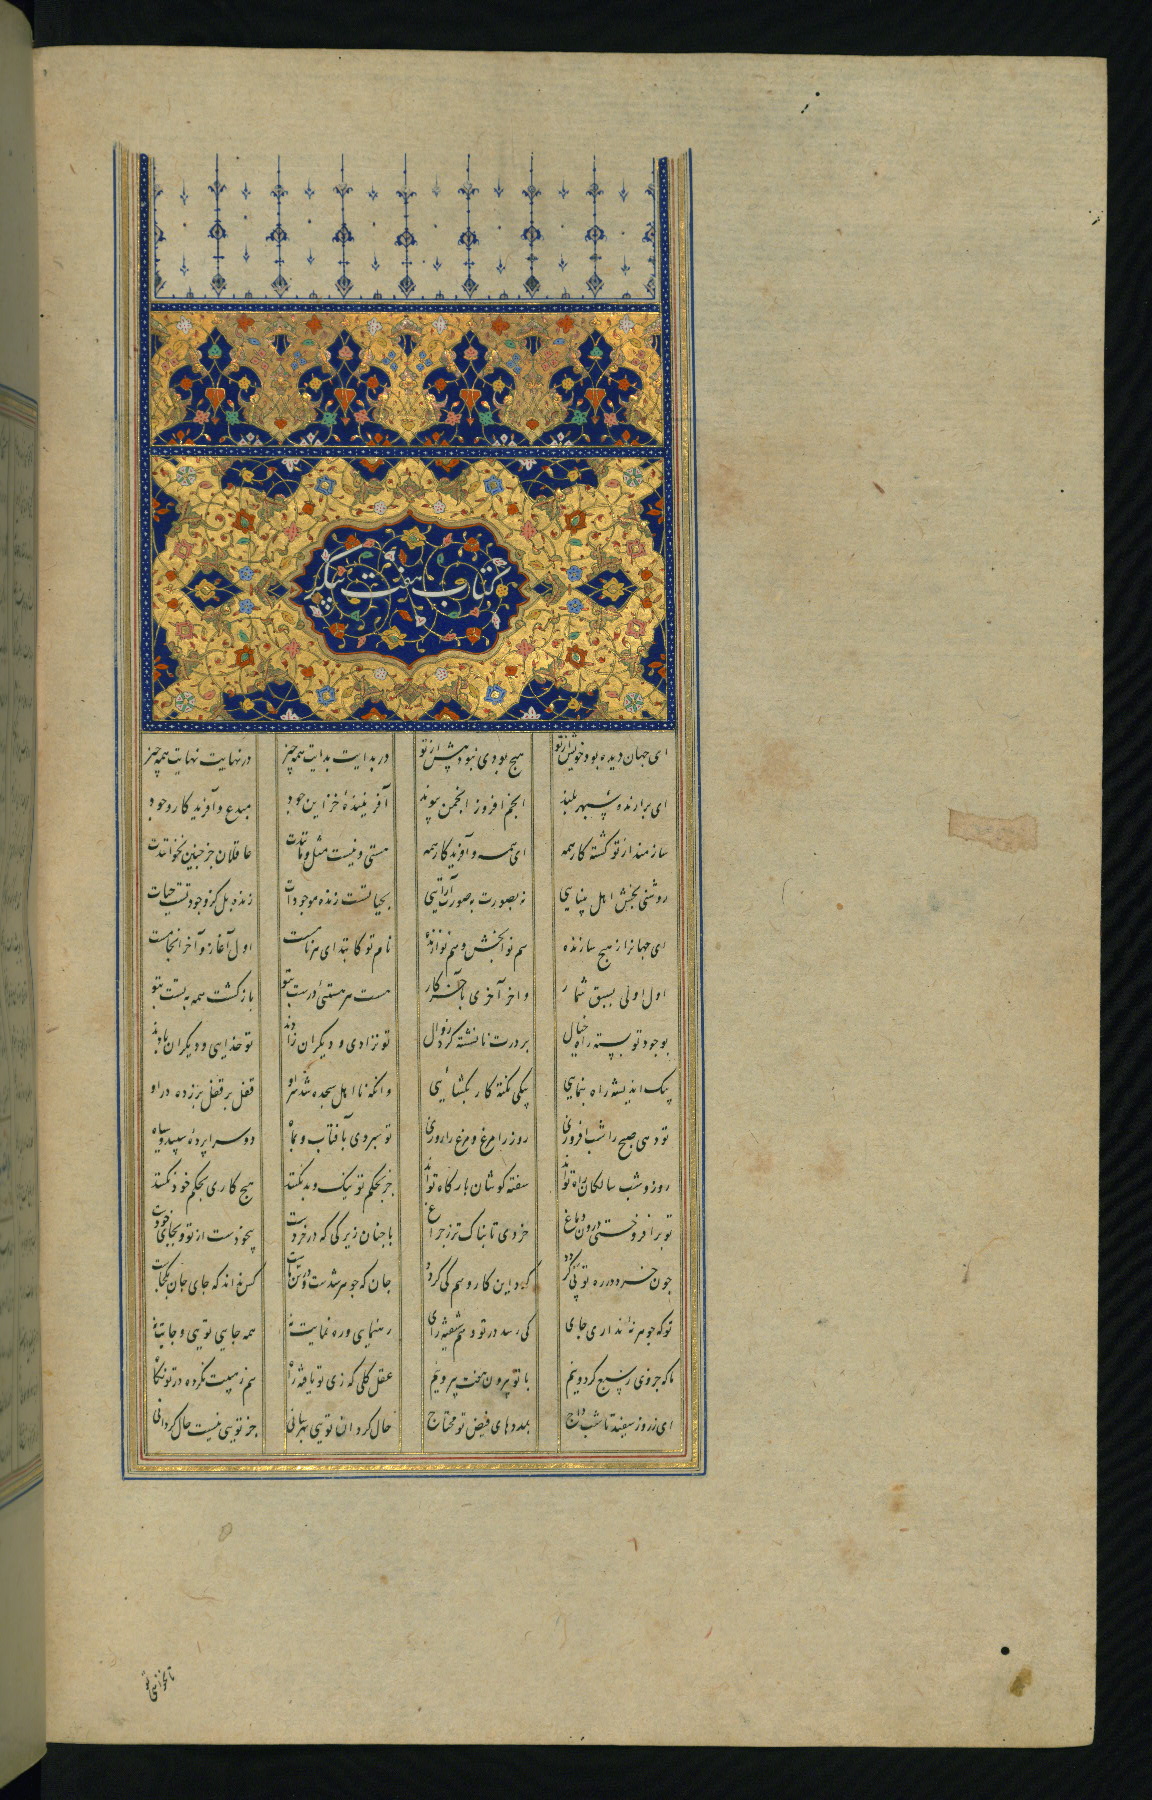 کتاب هفت پیکر
ای جهان دیده بود خویش از تو هیچ بودی نبود پیش از تو در بدایت بدایت همه چیز در نهایت نهایت همه چیز
ای برارنده سپهر بلند انجم افروز انجمن پیوند آفریننده خزاین جود مبدع و آفریدکار وجود
سازمند از تو کشته کار همه ای همه و آفریدکار همه هستی و نیست مثل و مانندت عاقلان جز چنین نخوانندت
روشنی بخش اهل بینایی نه بصورت بصورت آرایی بحیاتست زنده موجودات زنده بل کز وجود تست حیات
ای جهانرا ز هیچ سازنده هم نوابخش و هم نوازنده نام تو کابتدای هر نامست اول آغاز و آخر انجامست
اول اولی بسبق شمار و آخر آخری بآخر کار هست هر هستئی درست بتو بازکشت همه بتست بتو
بوجود تو بسته راه خیال بر درت نانشسته کرد زوال تو نزادی و دیکران زادند تو خدایی و دیکران بادند
بیک اندیشه راه بنمایی بیکی نکته کار بکشائی وانکه نا اهل سجده شد سر او قفل بر قفل برزده در او
تو دهی صبح را شب افروزی روز را مرغ و مرغ را روزی تو سپردی بآفتاب و بماه دو سراپرده سپید و سیاه
روز و شب سالکان راه تواند سفته کوشان بارکاه تواند جز بحکم تو نیک و بد نکنند هیچ کاری بحکم خود نکنند
تو برافروختی درون دماغ خردی تابناک‌تر ز چراغ با چنان زیرکی که در خردست بیخودست از تو و بجای خودست
چون خرد در ره تو پی کردد کرد این کار وهم کی کردد جان که جوهر شدست و در تن ماست کس نداند که جای جان بکجاست
تو که جوهر نه نداری جای کی رسد در تو وهم شیفته رای رهنمایی و ره نمایت نه همه جایی تویی و جایت نه
ما که جزوی ز سبع کردونیم با تو بیرون هفت بیرونیم عقل کلی که زی تو یافته راه هم ز هیبت نکرده در تو نکاه
ای ز روز سفید تا شب داج بمددهای فیض تو محتاج حال کردان تویی بهر سانی جز تویی نیست حال کردانی
تا نخواهی تو